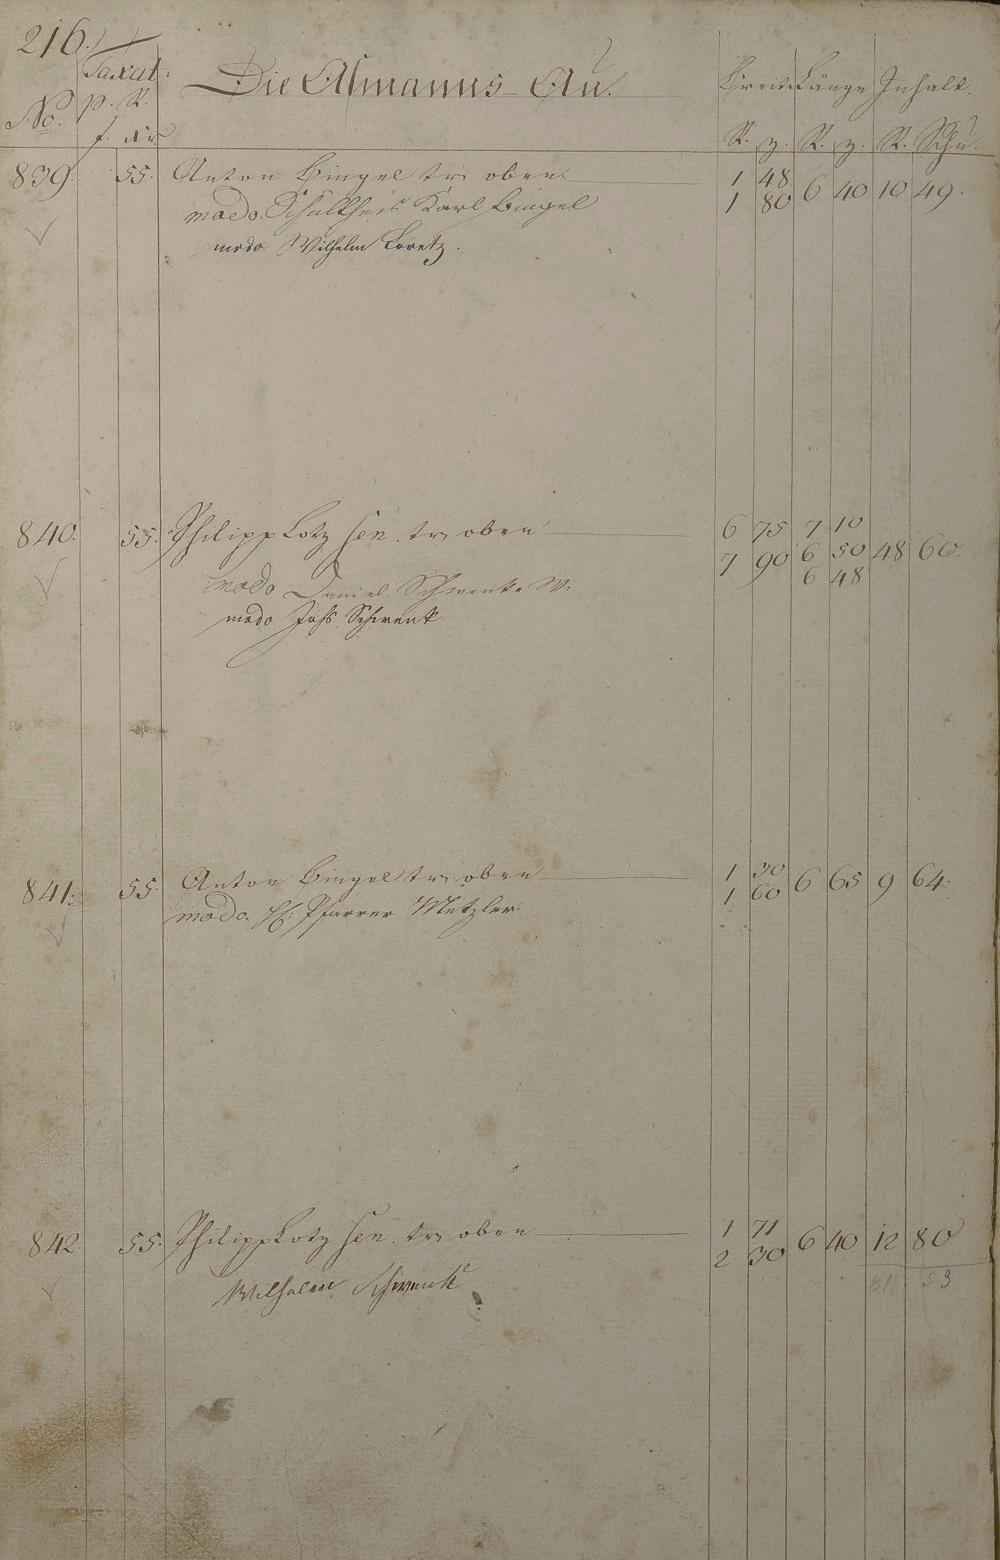 216.
Taxat: Die Asmanns-Au. Breite Länge Inhalt.
No. p. R.
f. xr. R. z. R. z. R. Schu.
839. 55. Anton Bingel tr: oben 1 48 6 40 10 49.
modo. Schultheis Karl Bingel 1 80
modo Wilhelm Loretz.
840. 55. Philipp Lotz sen. tr: oben 6 75 7 10
7 90 6 50 48 60.
modo Daniel Schwenk. W. 6 48
modo Johs Schwenk
841. 55. Anton Bingel tr: oben 1 30 6 65 9 64.
modo. H: Pfarrer Metzler. 1 60
842. 55. Philipp Lotz sen. tr: oben 1 71 6 40 12 80
2 30
Wilhelm Schwenk 81 53